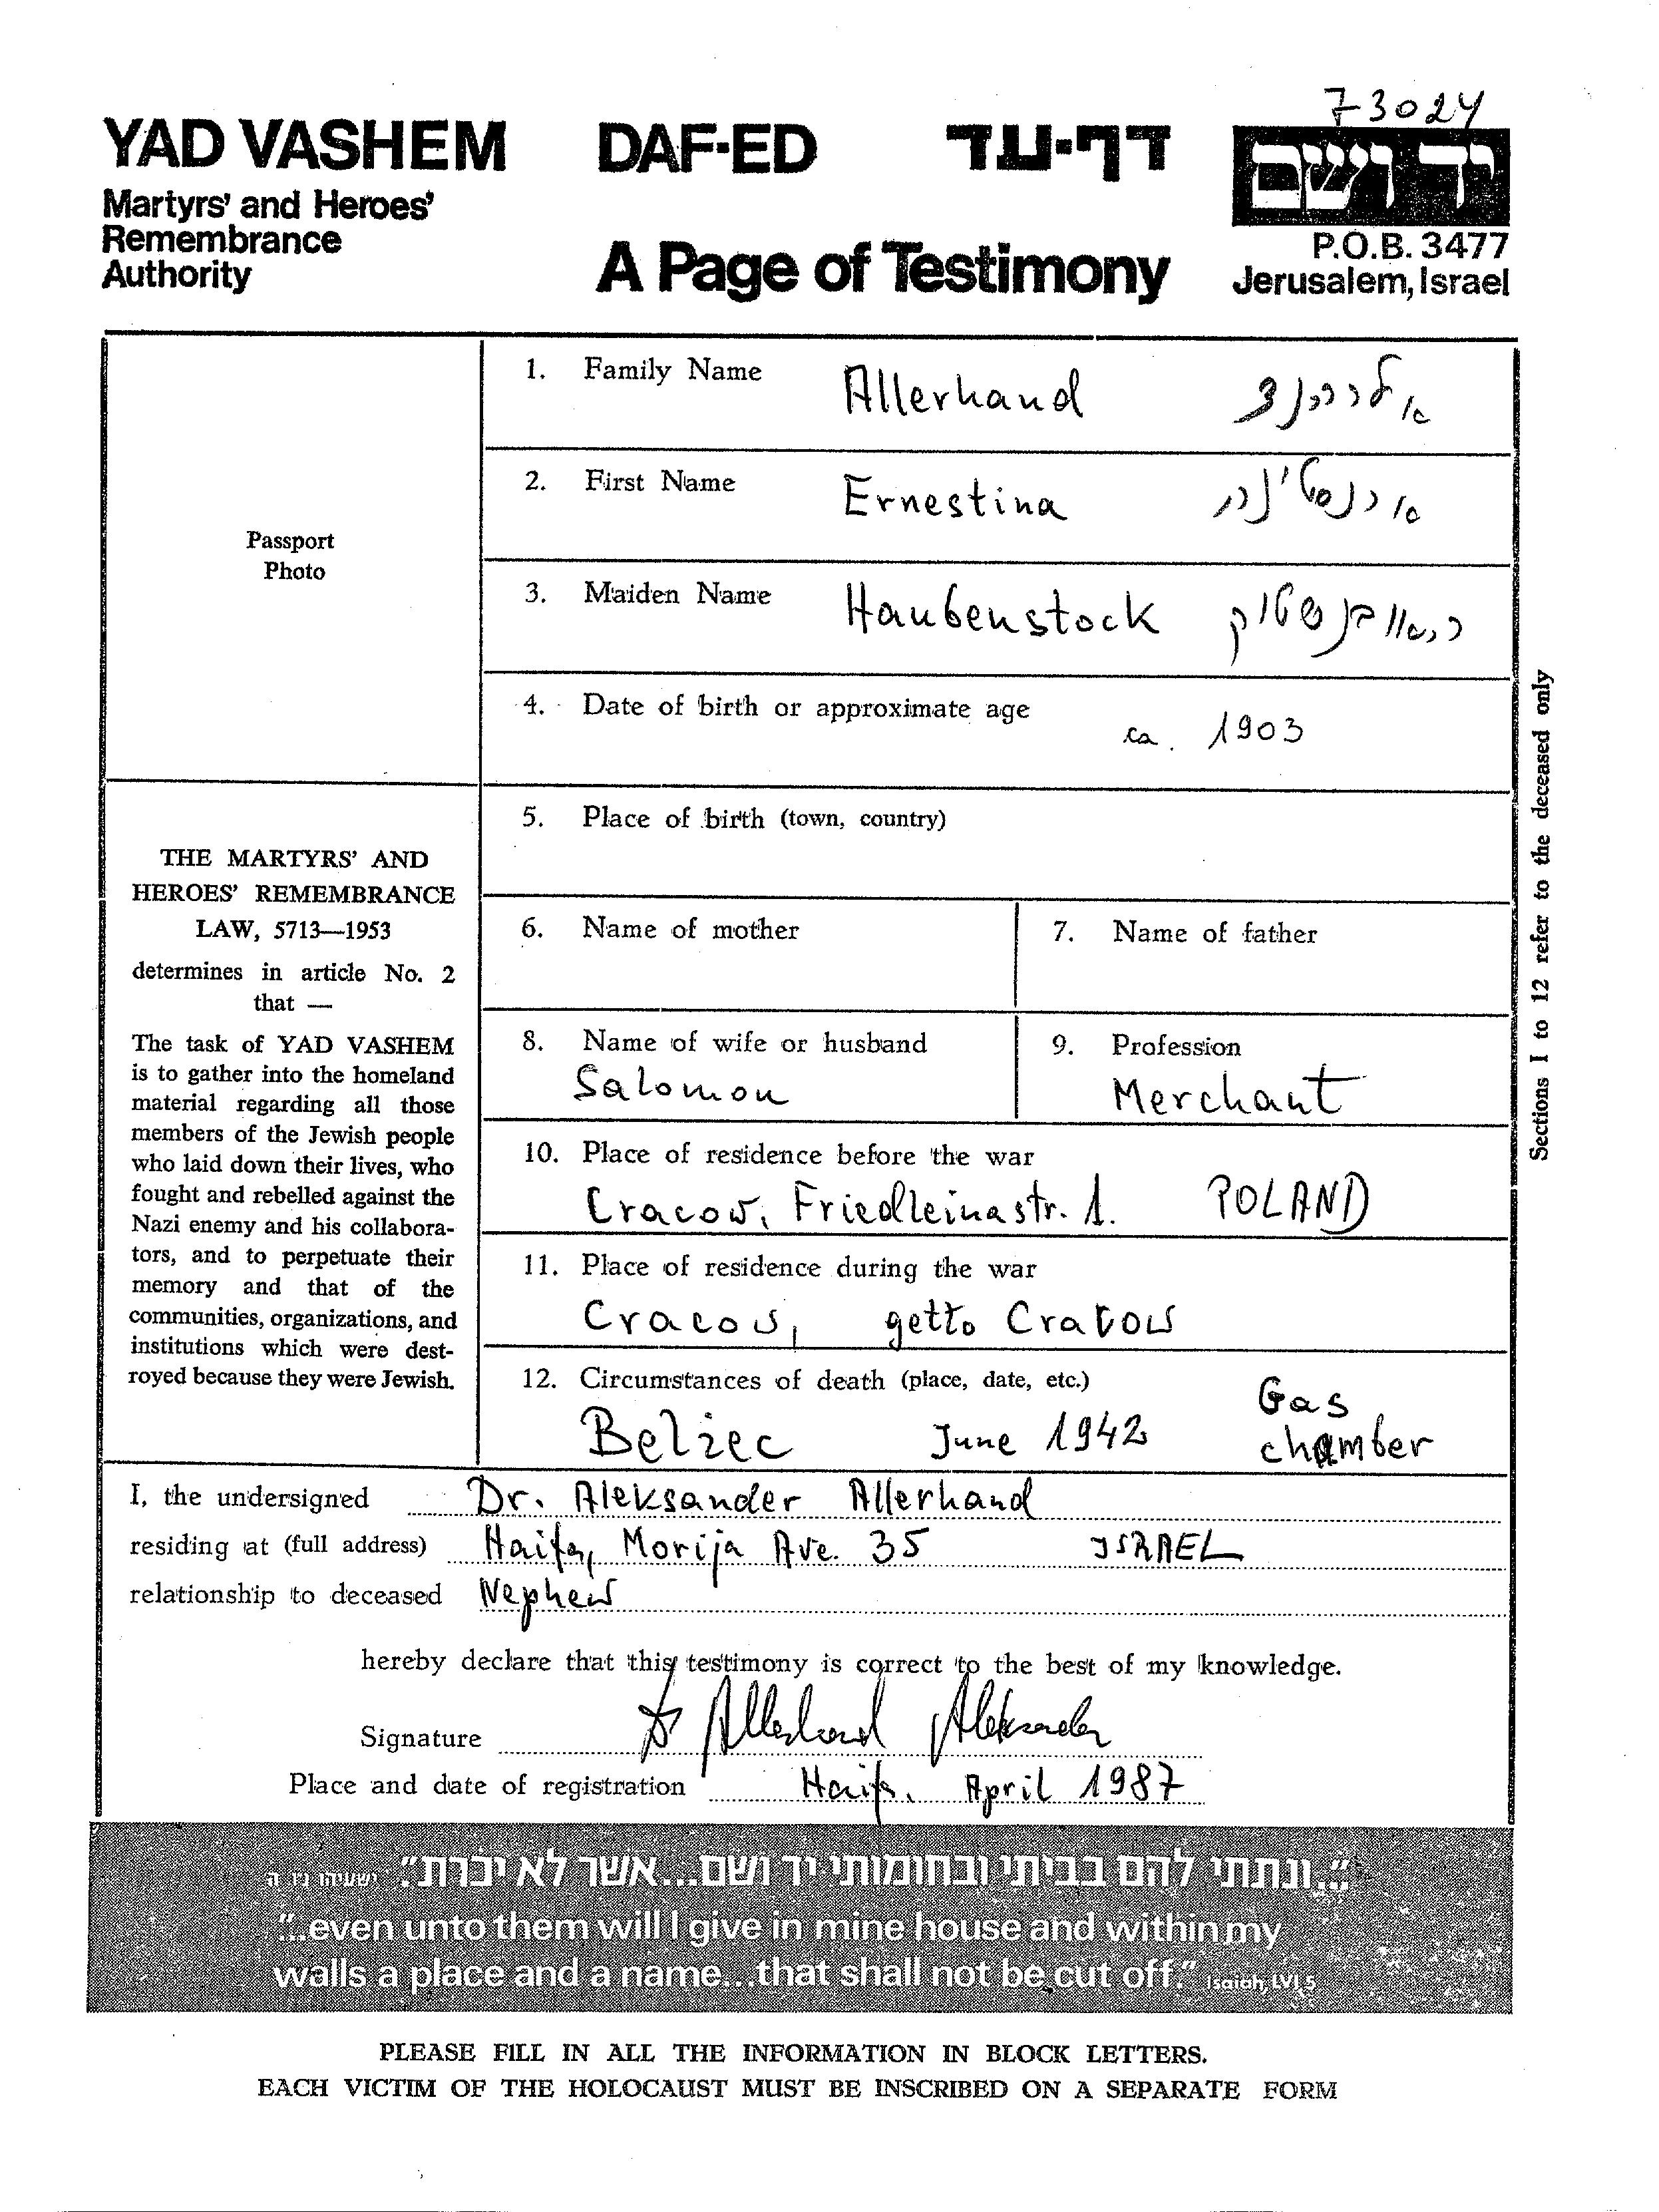 73024
YAD VASHEM DAF-ED דף-עד יד ושם
Martyrs' and Heroes'
Remembrance
Authority
A Page of Testimony
P.O.B. 3477
Jerusalem, Israel
1. Family Name Allerhand אלרהנד
2. First Name Ernestina ארנסטינה
Passport
Photo
3. Maiden Name Haubenstock האובנשטוק
4. Date of birth or approximate age ca. 1903
5. Place of birth (town, country)
6. Name of mother 7. Name of father
8. Name of wife or husband 9. Profession
Salomon Merchant
10. Place of residence before the war
Cracow, Friedleinastr. 1. POLAND
11. Place of residence during the war
Cracow, getto Cracow
12. Circumstances of death (place, date, etc.)
Belzec June 1942 Gas chamber
THE MARTYRS' AND
HEROES' REMEMBRANCE
LAW, 5713—1953
determines in article No. 2
that —
The task of YAD VASHEM
is to gather into the homeland
material regarding all those
members of the Jewish people
who laid down their lives, who
fought and rebelled against the
Nazi enemy and his collabora-
tors, and to perpetuate their
memory and that of the
communities, organizations, and
institutions which were dest-
royed because they were Jewish.
Sections 1 to 12 refer to the deceased only
I, the undersigned Dr. Aleksander Allerhand
residing at (full address) Haifa, Morija Ave. 35 ISRAEL
relationship to deceased Nephew
hereby declare that this testimony is correct to the best of my knowledge.
Signature Dr Allerhand Aleksander
Place and date of registration Haifa. April 1987
"...ונתתי להם בביתי ובחומותי יד ושם...אשר לא יכרת." ישעיהו נו ה
"...even unto them will I give in mine house and within my
walls a place and a name...that shall not be cut off." Isaiah, LVI, 5
PLEASE FILL IN ALL THE INFORMATION IN BLOCK LETTERS.
EACH VICTIM OF THE HOLOCAUST MUST BE INSCRIBED ON A SEPARATE FORM